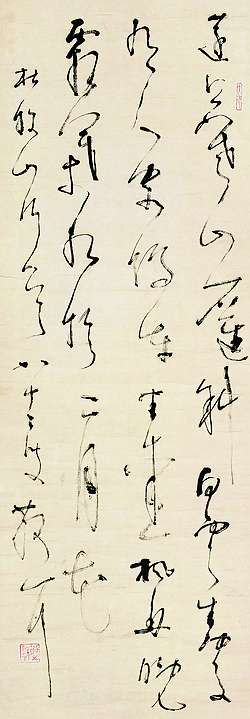 遠上寒山石徑斜白雲生處
有人家停車坐愛楓林晚
霜葉紅於二月花
杜牧山行 八十二叟 散耳